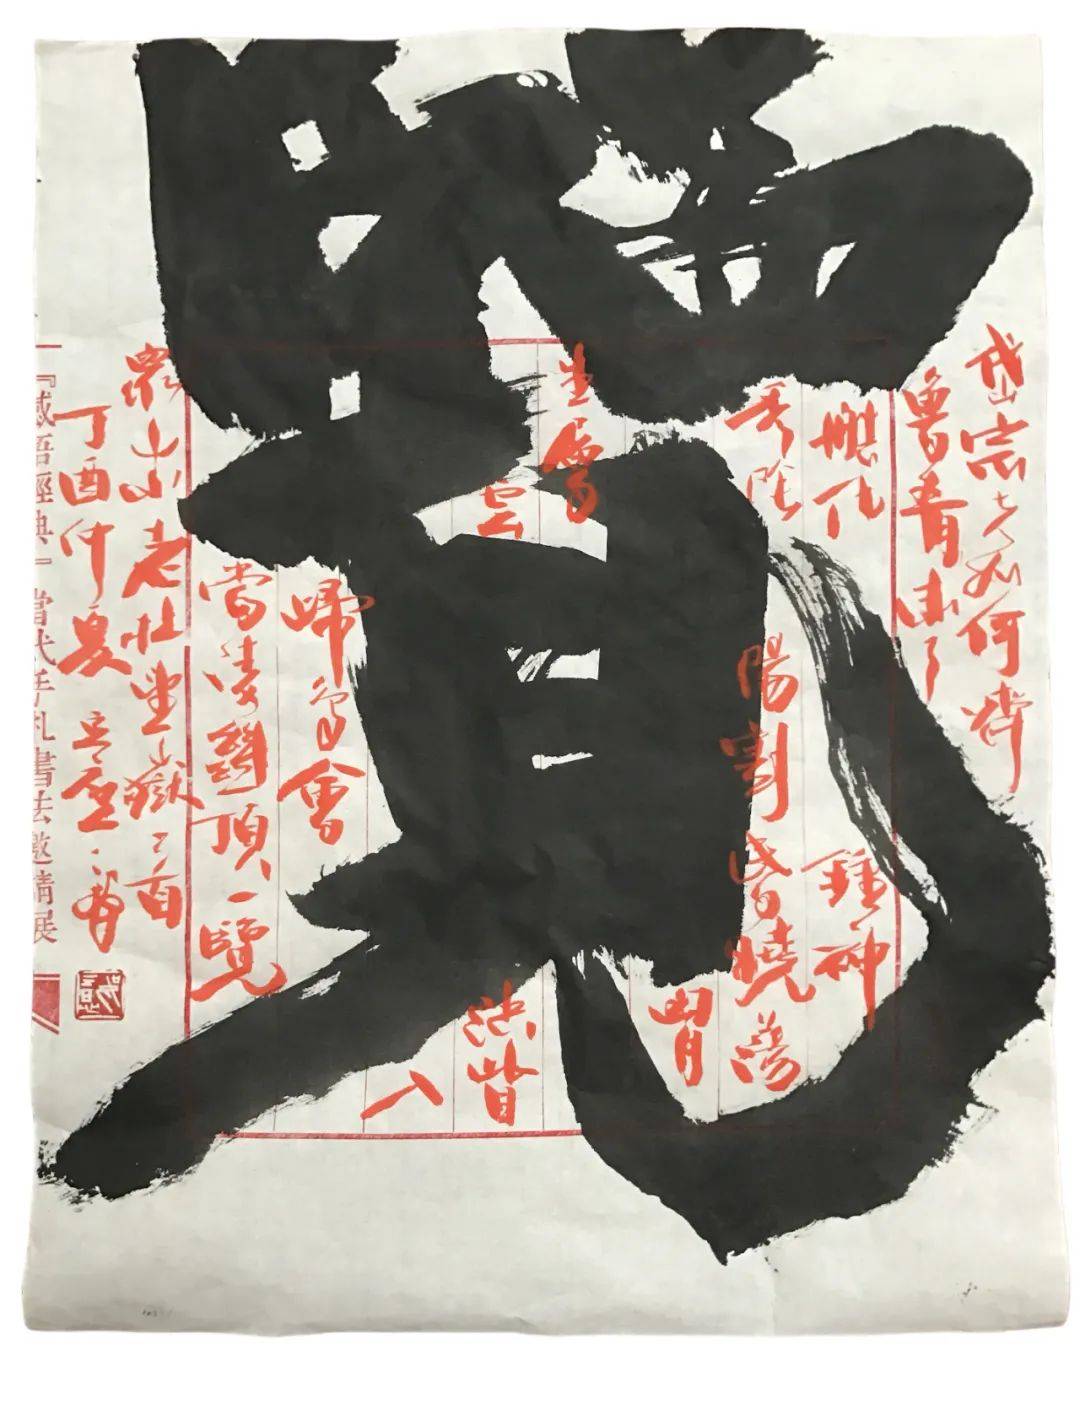 覽
岱宗夫如何齊
魯青未了
造化鍾神
秀陰陽割昏曉蕩
胸
生層
雲決眥
入
歸鳥會
當凌絕頂一覽
眾山小老杜望嶽首
丁酉仲夏
『感悟經典』當代手札書法邀請展